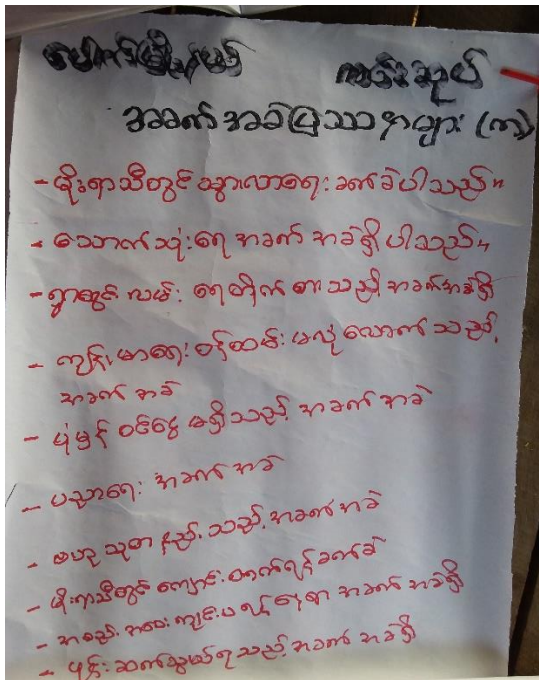 ပေါက်မြို့နယ် ကင်းအုပ်
အခက်အခဲပြဿနာများ (က)
- မိုးရာသီတွင် သွားလာရေး ခက်ခဲပါသည်။
- သောက်သုံးရေ အခက် အခဲရှိပါသည်။
- ရွာတွင်း လမ်း ရေတိုက် စားသည့် အခက်အခဲရှိ
- ကျန်းမာရေး ဝန်ထမ်း မလုံလောက် သည့်
အခက် အခဲ
- ပုံမှန် ဝင်ငွေ မရှိသည့် အခက် အခဲ
- ပညာရေး အခက် အခဲ
- ဗဟု သုတ နည်း သည့် အခက် အခဲ
- မိုးရာသီတွင် ကျောင်း တက်ရန် ခက်ခဲ
- အစည်း အဝေး ကျင်းပ ရန် နေရာ အခက် အခဲရှိ
- ဖုန်း ဆက်သွယ်ရ သည့် အခက် အခဲရှိ